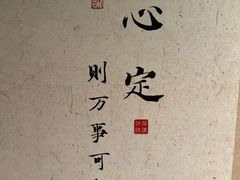 心定
则万事可